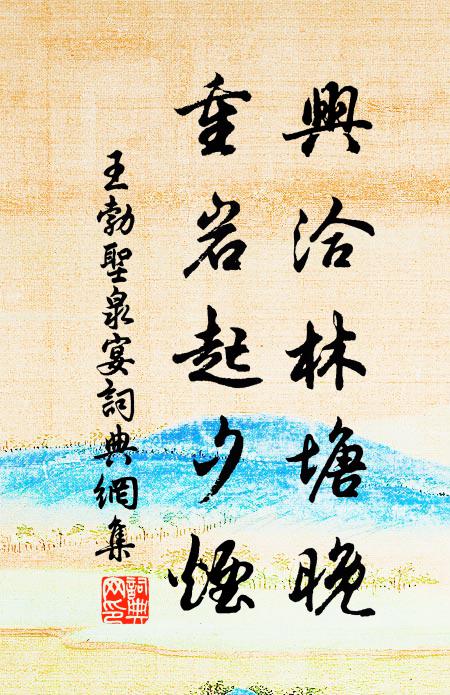 興洽林塘晚
重岩起夕煙
王勃聖泉宴詞典網集